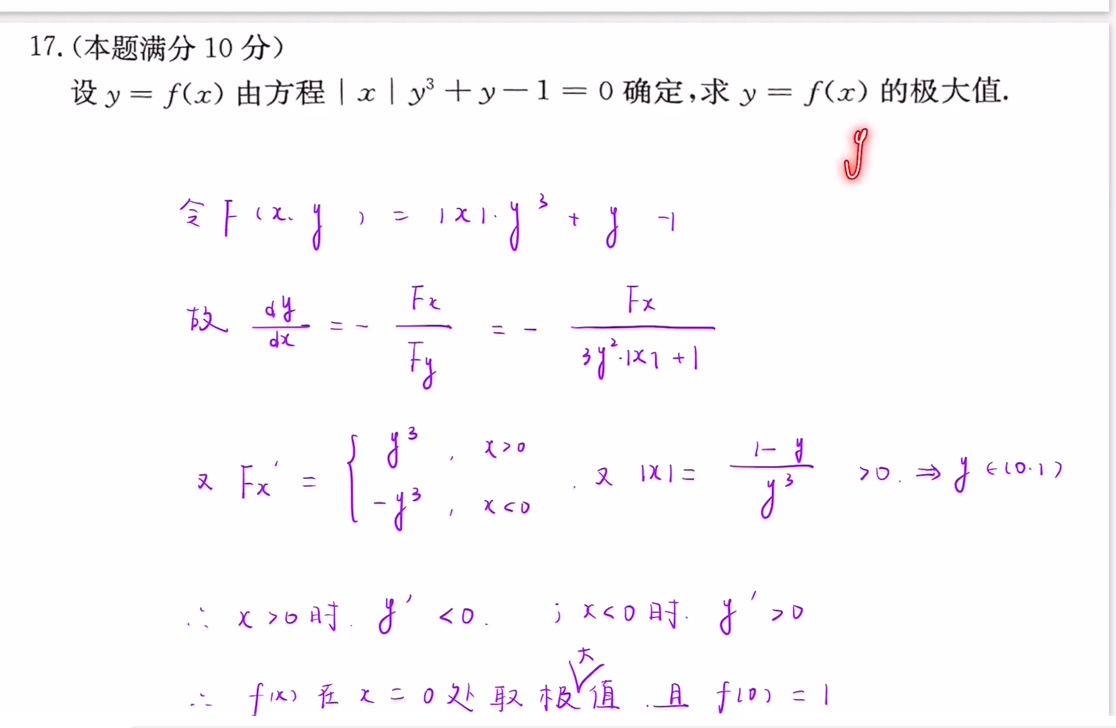 17.(本题满分 10 分)
设 y = f(x) 由方程 | x | y³ + y − 1 = 0 确定,求 y = f(x) 的极大值.
y
令 F(x, y) = |x|·y³ + y −1
故 dy/dx = − Fx/Fy = − Fx/(3y²·|x|+1)
又 Fx′ = { y³, x>0 ; −y³, x<0 . 又 |x| = (1−y)/y³ >0. ⇒ y ∈(0.1)
∴ x>0时. y′ <0. ; x<0时. y′>0
∴ f(x) 在 x=0处取极大值.且 f(0) = 1